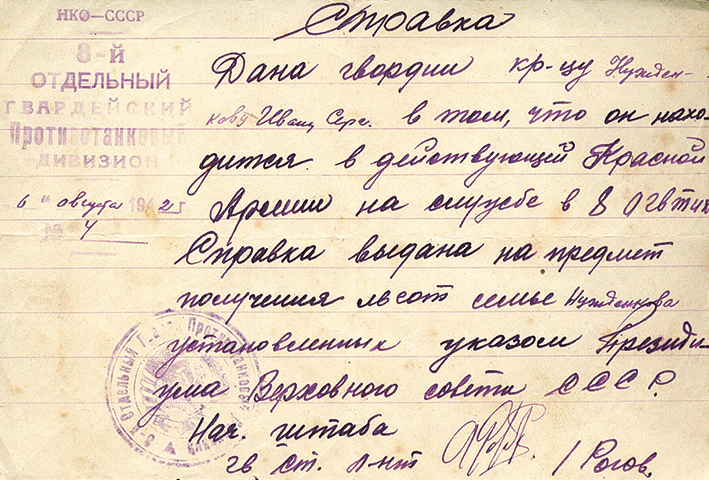 НКО—СССР
8-й
ОТДЕЛЬНЫЙ
ГВАРДЕЙСКИЙ
Противотанковый
ДИВИЗИОН
6 " августа 1942 г
№ 4
Справка
Дана гвардии кр-цу Нужден-
кову Ивану Серг. в том, что он нахо-
дится в действующей Красной
Армии на службе в 8 ОГвТИ
Справка выдана на предмет
получения льгот семье Нужденкова
установленных указом Президи-
ума Верховного совета СССР.
Нач. штаба
гв ст. л-нт / Рогов